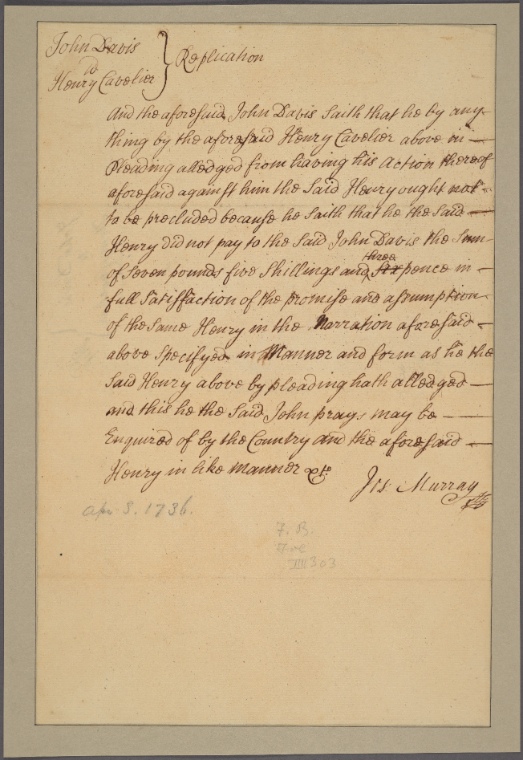 John Davis
to } Replication
Henry Cavelier
And the aforesaid John Davis saith that he by any
thing by the aforesaid Henry Cavelier above in
Pleading alledged from having his Action thereof
aforesaid against him the said Henry ought not
to be precluded because he saith that he the said
Henry did not pay to the said John Davis the Sum
three
of Seven pounds five Shillings and Six pence in
full Satisfaction of the promise and assumption
of the same Henry in the Narration aforesaid
above Specifyed in Manner and form as he the
said Henry above by pleading hath alledged
and this he the said John prays may be
Enquired of by the Country and the aforesaid
Henry in like manner &c
Jos. Murray
Apr. 8. 1736.
7. B.
III, 303